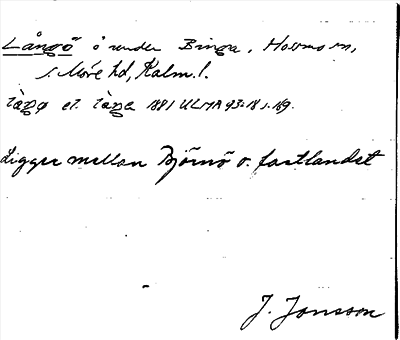 Långö ö under Binga, Hossmo sn,
S. Möre hd, Kalm. l.
tàgø et. tàga 1881 ULMA 93:18 s. 119.
Ligger mellan Björnö o. fastlandet
J. Jonsson